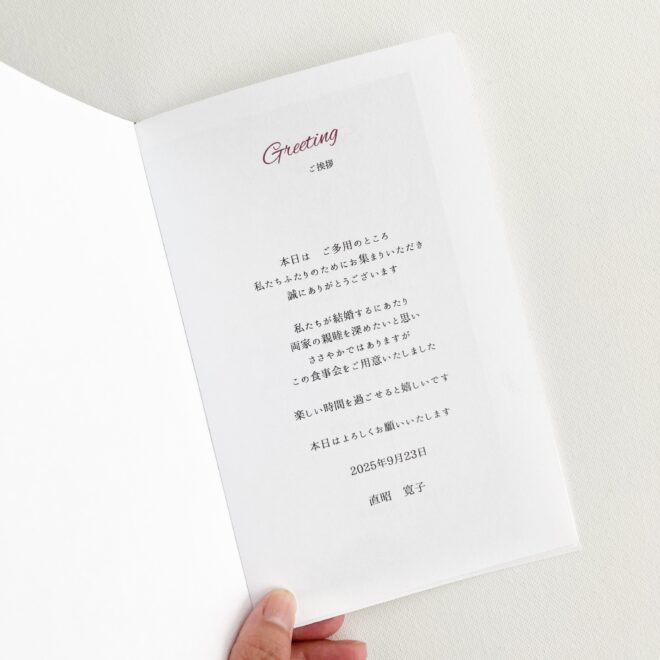 Greeting
ご挨拶
本日は　ご多用のところ
私たちふたりのためにお集まりいただき
誠にありがとうございます
私たちが結婚するにあたり
両家の親睦を深めたいと思い
ささやかではありますが
この食事会をご用意いたしました
楽しい時間を過ごせると嬉しいです
本日はよろしくお願いいたします
2025年9月23日
直昭　寛子